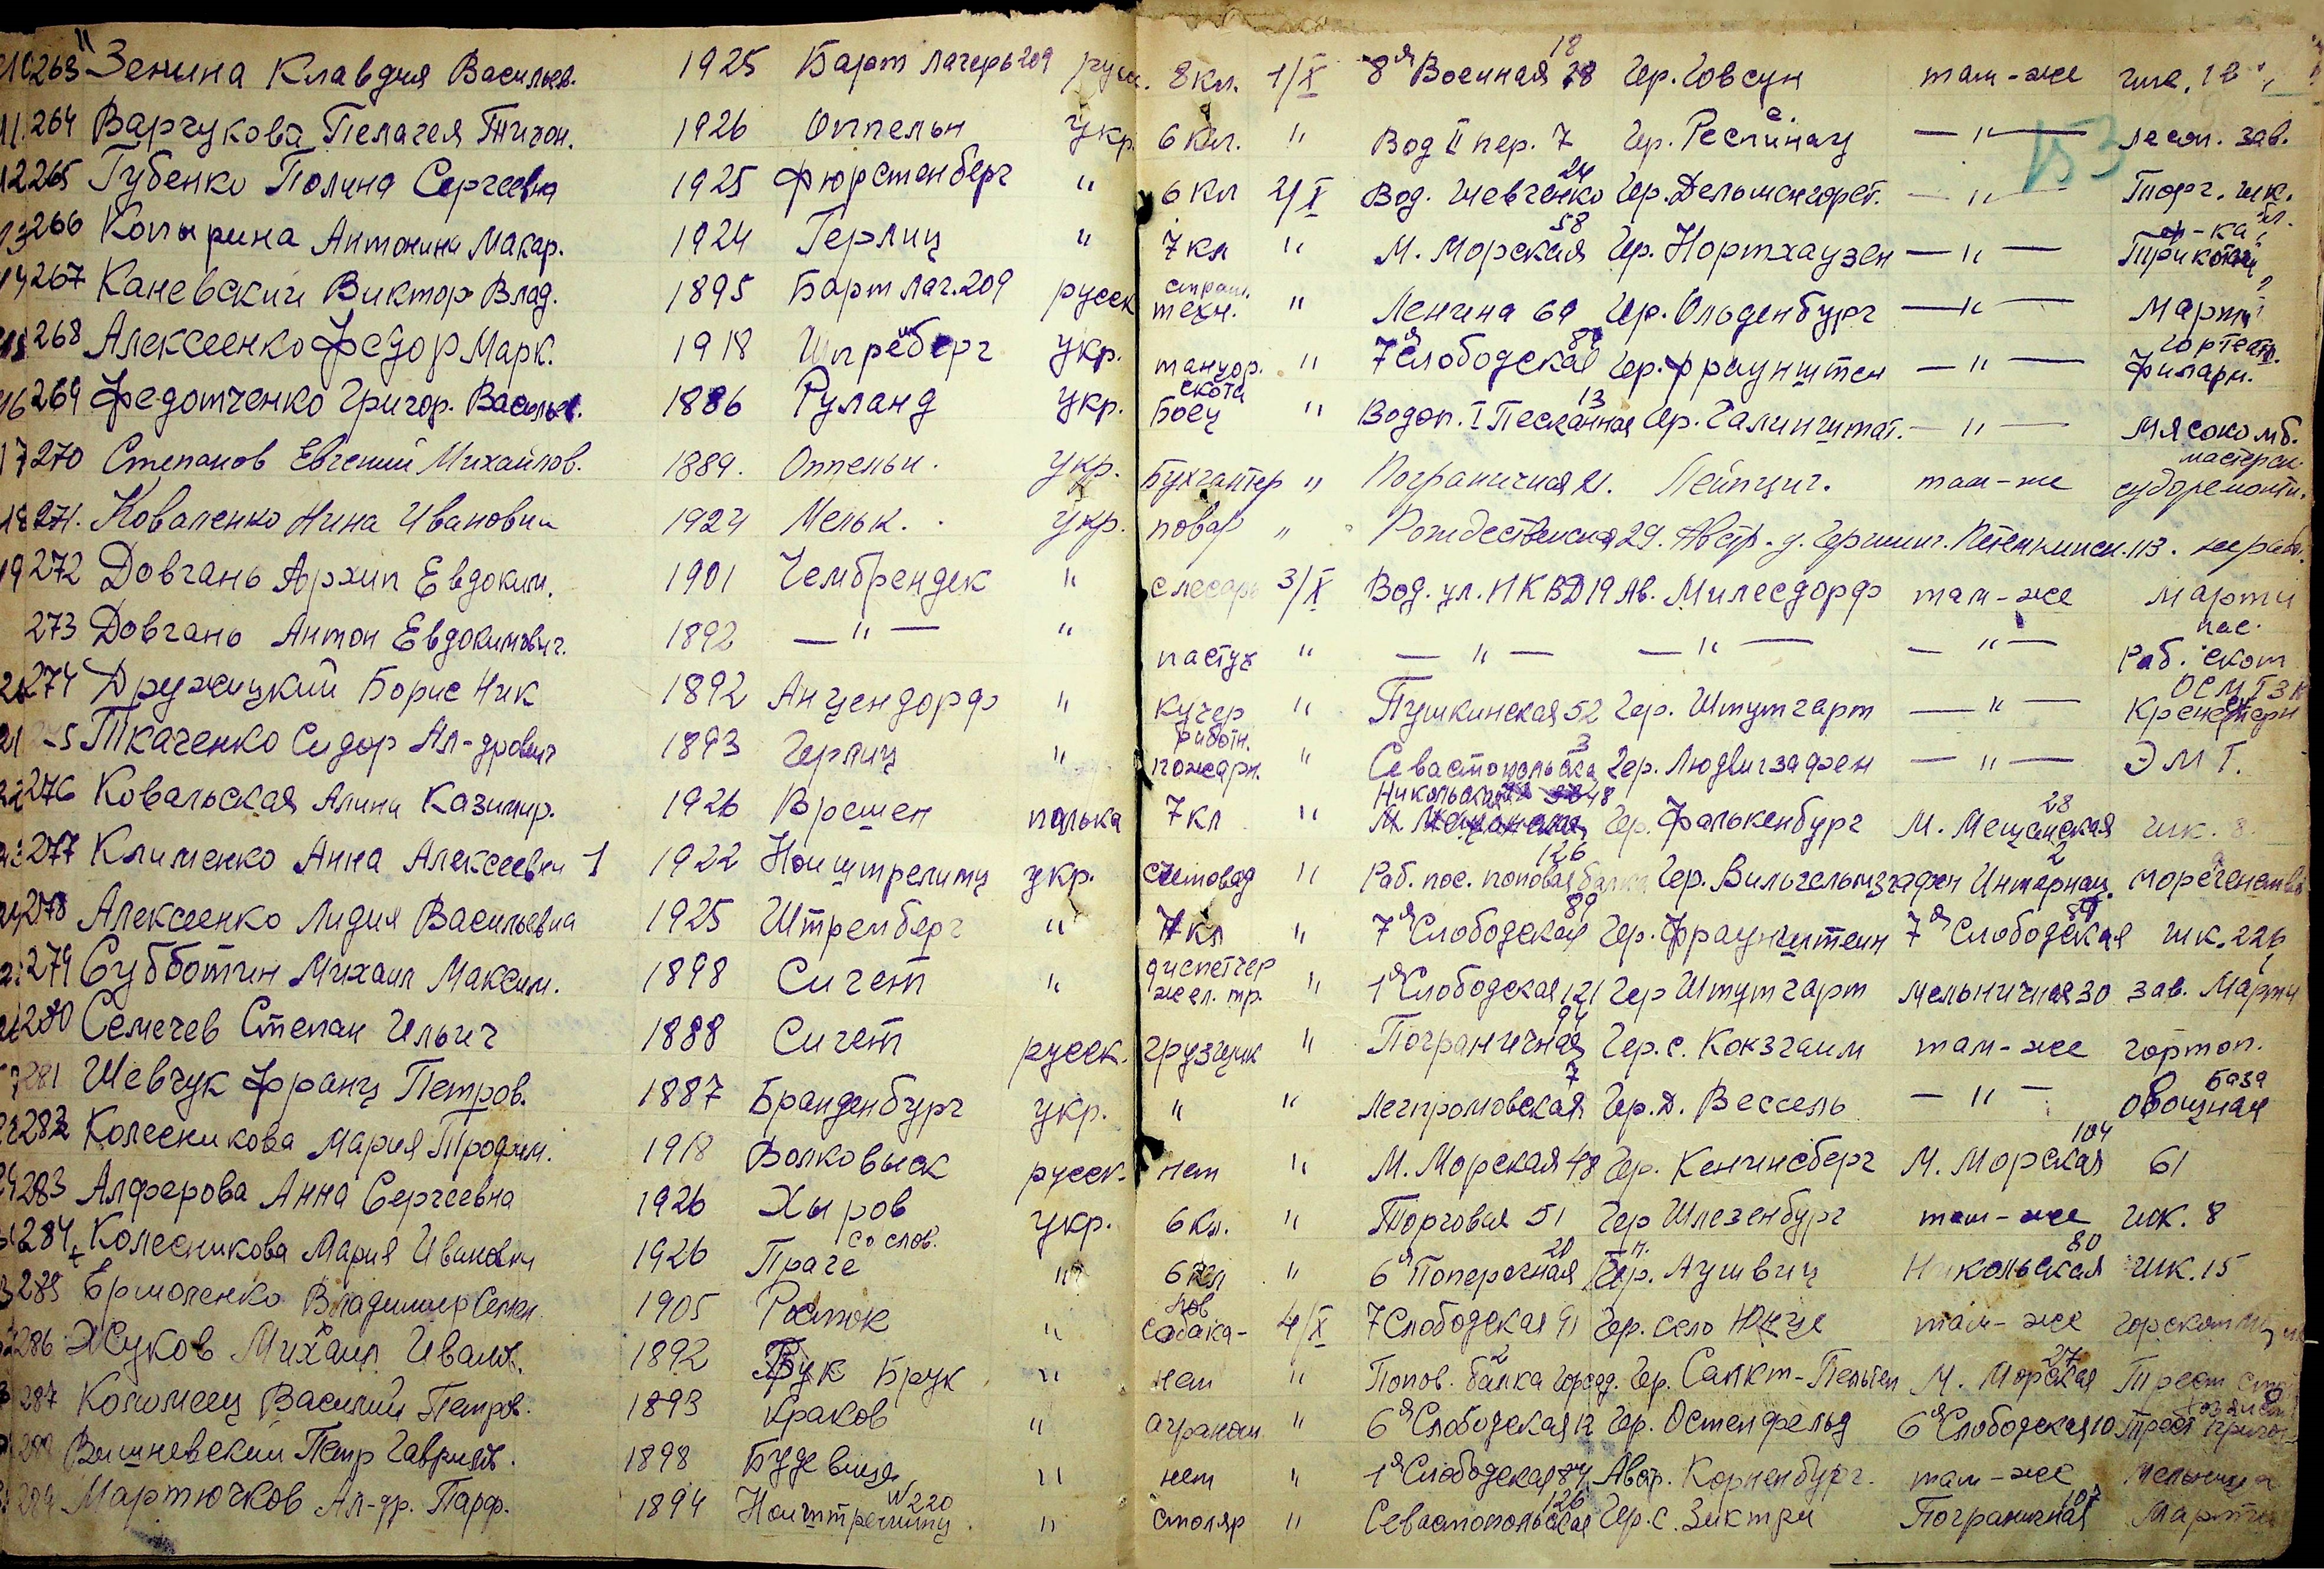 263 Зенина Клавдия Васильев. 1925 Барт лагерь 209 русск. 8 кл. 1/X 8я Военная 18 Гер. Говсун там-же шк. 18
264 Варчукова Пелагея Тихон. 1926 Оппельн укр. 6 кл. " Вод II пер. 7 Гер. — " — лесоп. зав.
12 265 Губенко Полина Сергеевна 1925 Фюрстенберг " 6 кл 2/X Вод. Шевченко 24 Гер. Дельменгорст. — " — Торг. шк.
13 266 Копырина Антонина Макар. 1924 Герлиц " 7 кл " М. Морская 58 Гер. Нортхаузен — " — ф-ка Трикотаж
14 267 Каневский Виктор Влад. 1895 Барт лаг. 209 русск строит. техн. " Ленина 69 Гер. Ольденбург — " — Марти
268 Алексеенко Федор Марк. 1918 Штремберг укр. танцор. " 7я Слободская 89 Гер. Фраунштен — " — Гортеатр. Филарм.
16 269 Федотченко Григор. Васильев. 1886 Руланд укр. Боец скота " Водоп. I Песчанная 13 Гер. Галинштат. — " — Мясокомб.
17 270 Степанов Евгений Михайлов. 1889. Оппельн. укр. Бухгалтер " Пограничная 21. Лейпциг. там-же мастерск. судоремонтн.
18 271. Коваленко Нина Ивановна 1924 Мельк. укр. повар " Рождественская 29. Австр. д. 113.
19 272 Довгань Архип Евдоким. 1901 Чембрендек " слесарь 3/X Вод. ул. НКВД 19 Ав. Милесдорф там-же Марти
273 Довгань Антон Евдокимович. 1892 — " — " пастух " — " — — " — — " — пас. Раб. скот
274 Дружицкий Борис Ник 1892 Анцендорф " кучер " Пушкинская 52 Гер. Штутгарт — " —
21 Ткаченко Сидор Ал-дрович 1893 Герлиц " работн. пожарн. " Севастопольска 3 Гер. Людвигзафен — " — ЭМТ.
276 Ковальская Алина Казимир. 1926 Врешен полька 7 кл " Никольская 48 Гер. Фалькенбург М. Мещанская 28 шк. 8
277 Клименко Анна Алексеевн 1 1922 Ноиштрелитц укр. счетовод " Раб. пос. поповая балка 126 Гер. Вильгельмзгафен Интернац. 2
278 Алексеенко Лидия Васильевна 1925 Штремберг " 7 кл " 7я Слободская 89 Гер. Фраунштеин 7я Слободская 89 шк. 226
279 Субботин Михаил Максим. 1898 Сигет " диспетчер жел. тр. " 1я Слободская 121 Гер Штутгарт Мельничная 30 зав. Марти
280 Семечев Степан Ильич 1888 Сигет русск. грузчик " Пограничная 94 Гер. с. Кокзгаим там-же гортоп.
281 Шевчук Франц Петров. 1887 Бранденбург укр. " " Легпромовская 7 Гер. Д. Вессель — " — база овощная
282 Колесникова Мария Трофим. 1918 Волковыск русск. нет " М. Морская 48 Гер. Кенигсберг М. Морская 104 61
283 Алферова Анна Сергеевна 1926 Хыров укр. 6 кл. " Торговая 51 Гер Шлезенбург там-же шк. 8
284 Колесникова Мария Ивановн 1926 Праге со слов. " 6 кл " 6я Поперечная 20 Гер. Аушвиц Никольская 80 шк. 15
285 Ермоленко Владимир Семен 1905 Росток " собака- 4/X 7 Слободская 91 Гер. село там-же
286 Жуков Михаил Иванов. 1892 Брук " нет " Попов. балка 2 Гер. Санкт-Пельтен М. Морская 27 Трест
287 Коломеец Василий Петров. 1893 Краков " агроном " 6я Слободская 12 Гер. Остенфельд 6я Слободская 10 Трест
Вишневский Петр Гаврилов. 1898 " нет " 1я Слободская 84 Австр. Корненбург. там-же мельница
Мартючков Ал-др. Парф. 1894 Ноиштрелитц N 220 " столяр " Севастопольская 126 Гер. с. Зиктри Пограничная 107 Марти
153